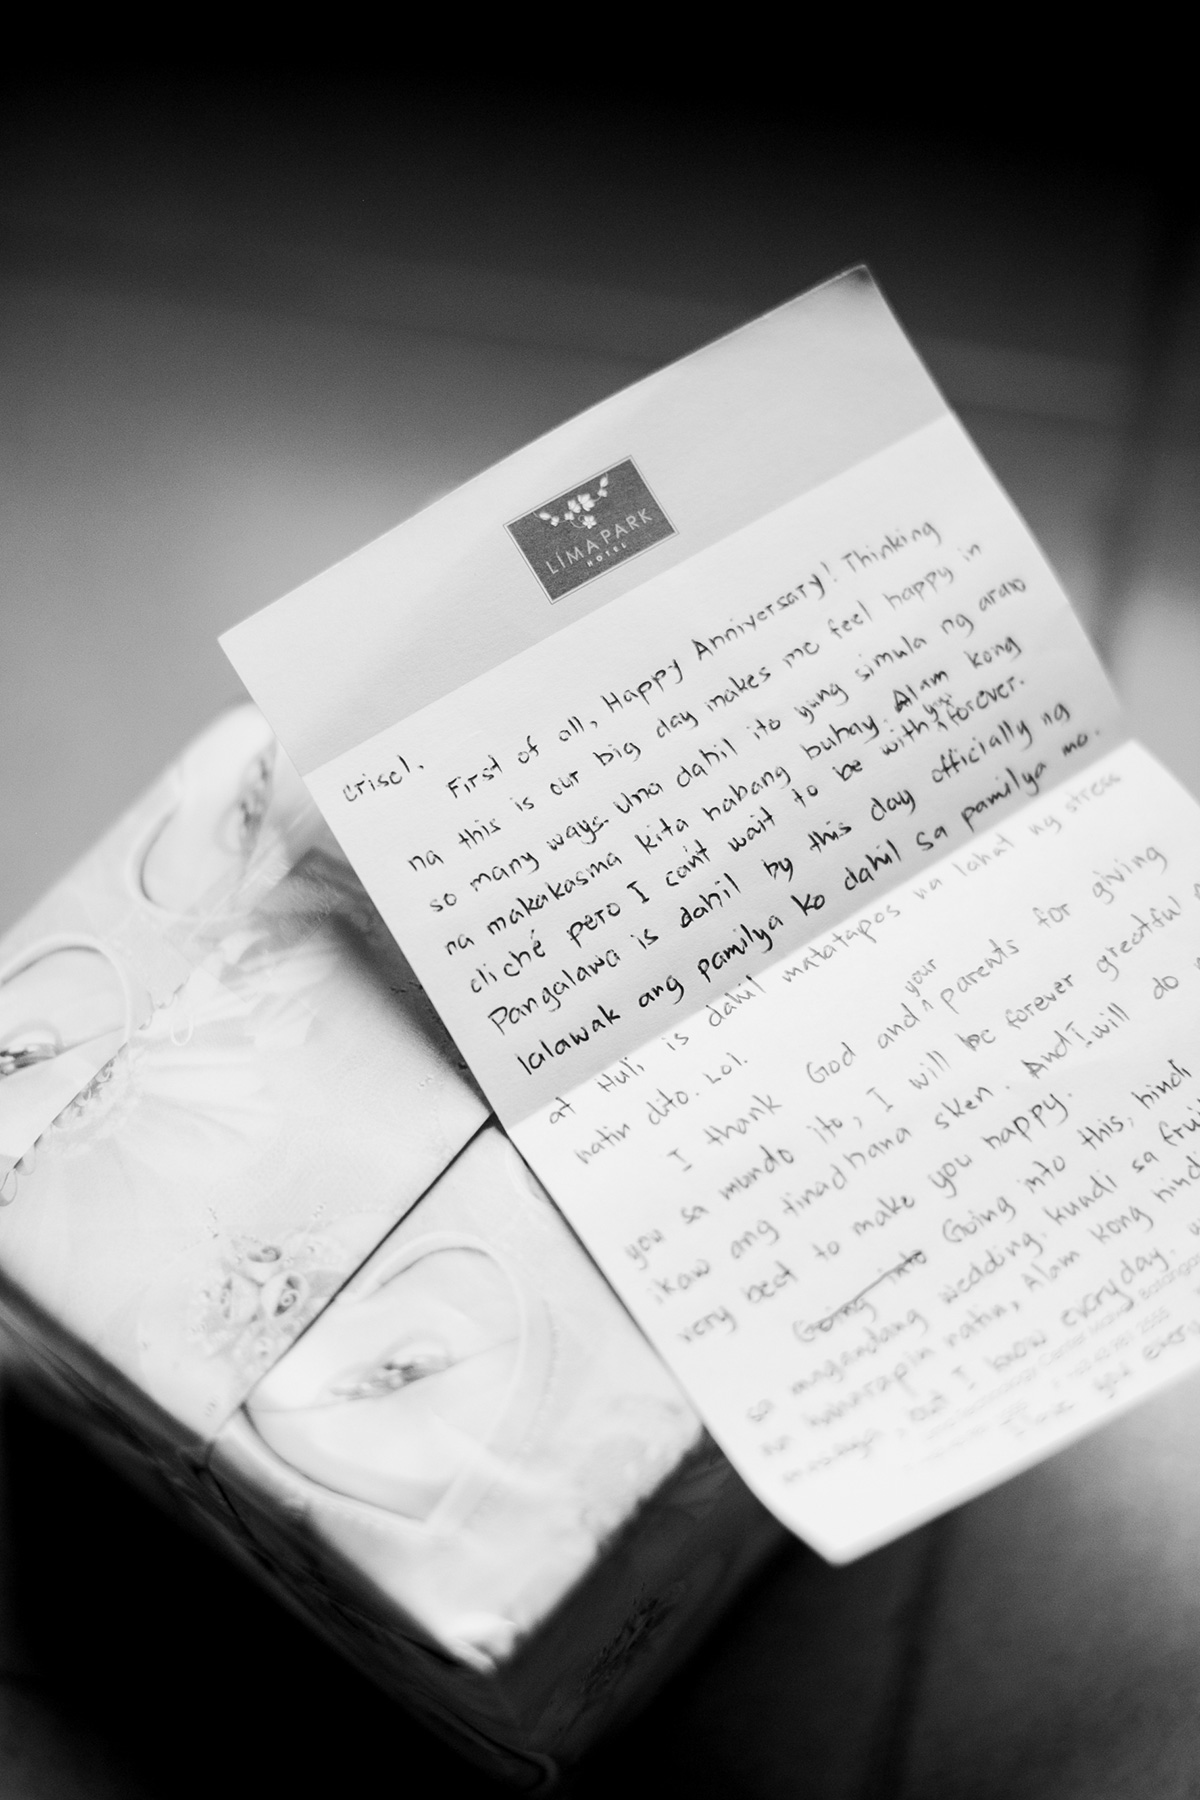 LIMA PARK
HOTEL
crisel.
First of all, Happy Anniversary! Thinking
na this is our big day makes me feel happy in
so many ways. Una dahil ito yung simula ng araw
na makakasma kita habang buhay. Alam kong
cliché pero I can't wait to be with you forever.
Pangalawa is dahil by this day officially ng
lalawak ang pamilya ko dahil sa pamilya mo.
at Huli is dahil matatapos na lahat ng stress
natin dito. Lol.
I thank God and your parents for giving
you sa mundo ito, I will be forever greatful
ikaw ang tinadhana sken. And I will do
very best to make you happy.
Going into Going into this, hindi
sa magandang wedding, kundi sa
na haharapin natin, Alam kong hindi
, but I know everyday.
you